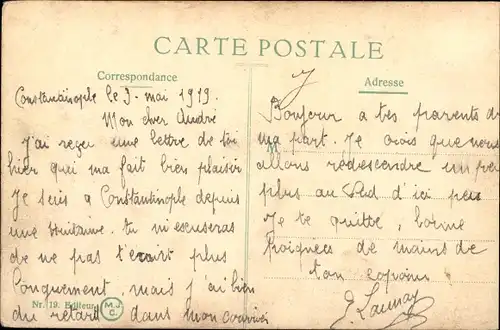 CARTE POSTALE
Correspondance
Adresse
Constantinople le 3 - mai 1919.
Mon cher André
J'ai reçu une lettre de toi
hier qui ma fait bien plaisir
Je suis a Constantinople depuis
une huitaine. tu m'escuseras
de ne pas t'écrire plus
longuement, mais j'ai bien
du retard dans mon courrier
Bonjour a tes parents de
ma part. Je crois que nous
allons redescendre un peu
plus au Sud d'ici peu
Je te quitte, bonne
poignées de mains de
ton copain
Launay
Nr. 19. Editeur M.J.C.